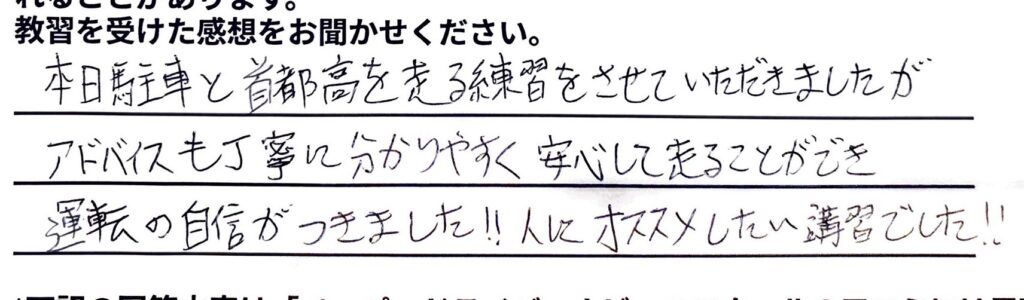 れることがあります。
教習を受けた感想をお聞かせください。
本日駐車と首都高を走る練習をさせていただきましたが
アドバイスも丁寧に分かりやすく安心して走ることができ
運転の自信がつきました!!人にオススメしたい講習でした!!